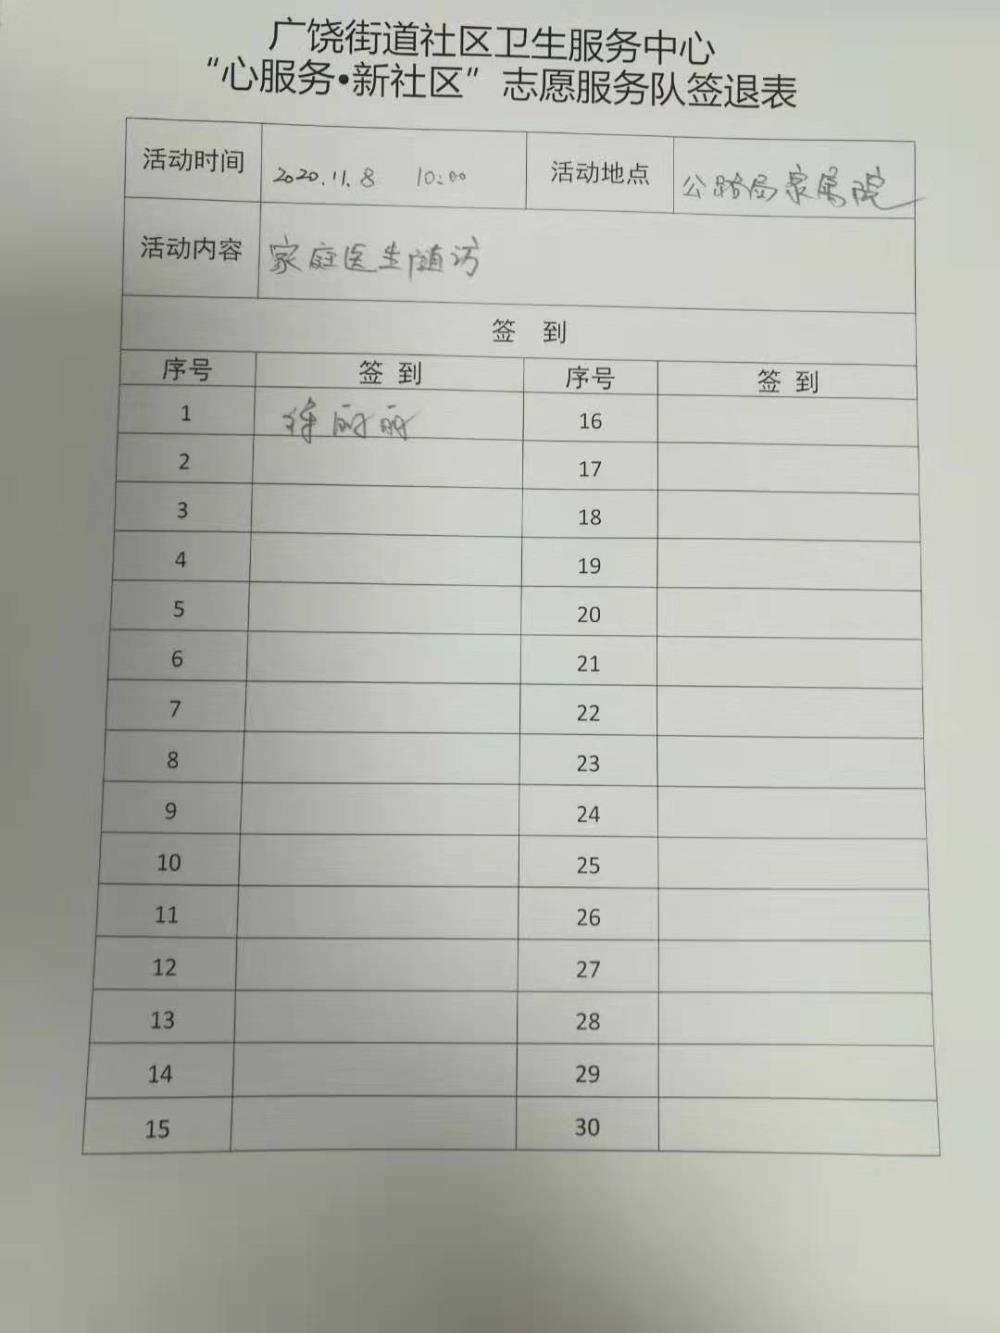 广饶街道社区卫生服务中心
“心服务•新社区”志愿服务队签退表
活动时间 2020.11.8 10:00 活动地点 公路局家属院
活动内容 家庭医生随访
签 到
序号 签 到 序号 签 到
1 徐丽丽 16
2 17
3 18
4 19
5 20
6 21
7 22
8 23
9 24
10 25
11 26
12 27
13 28
14 29
15 30